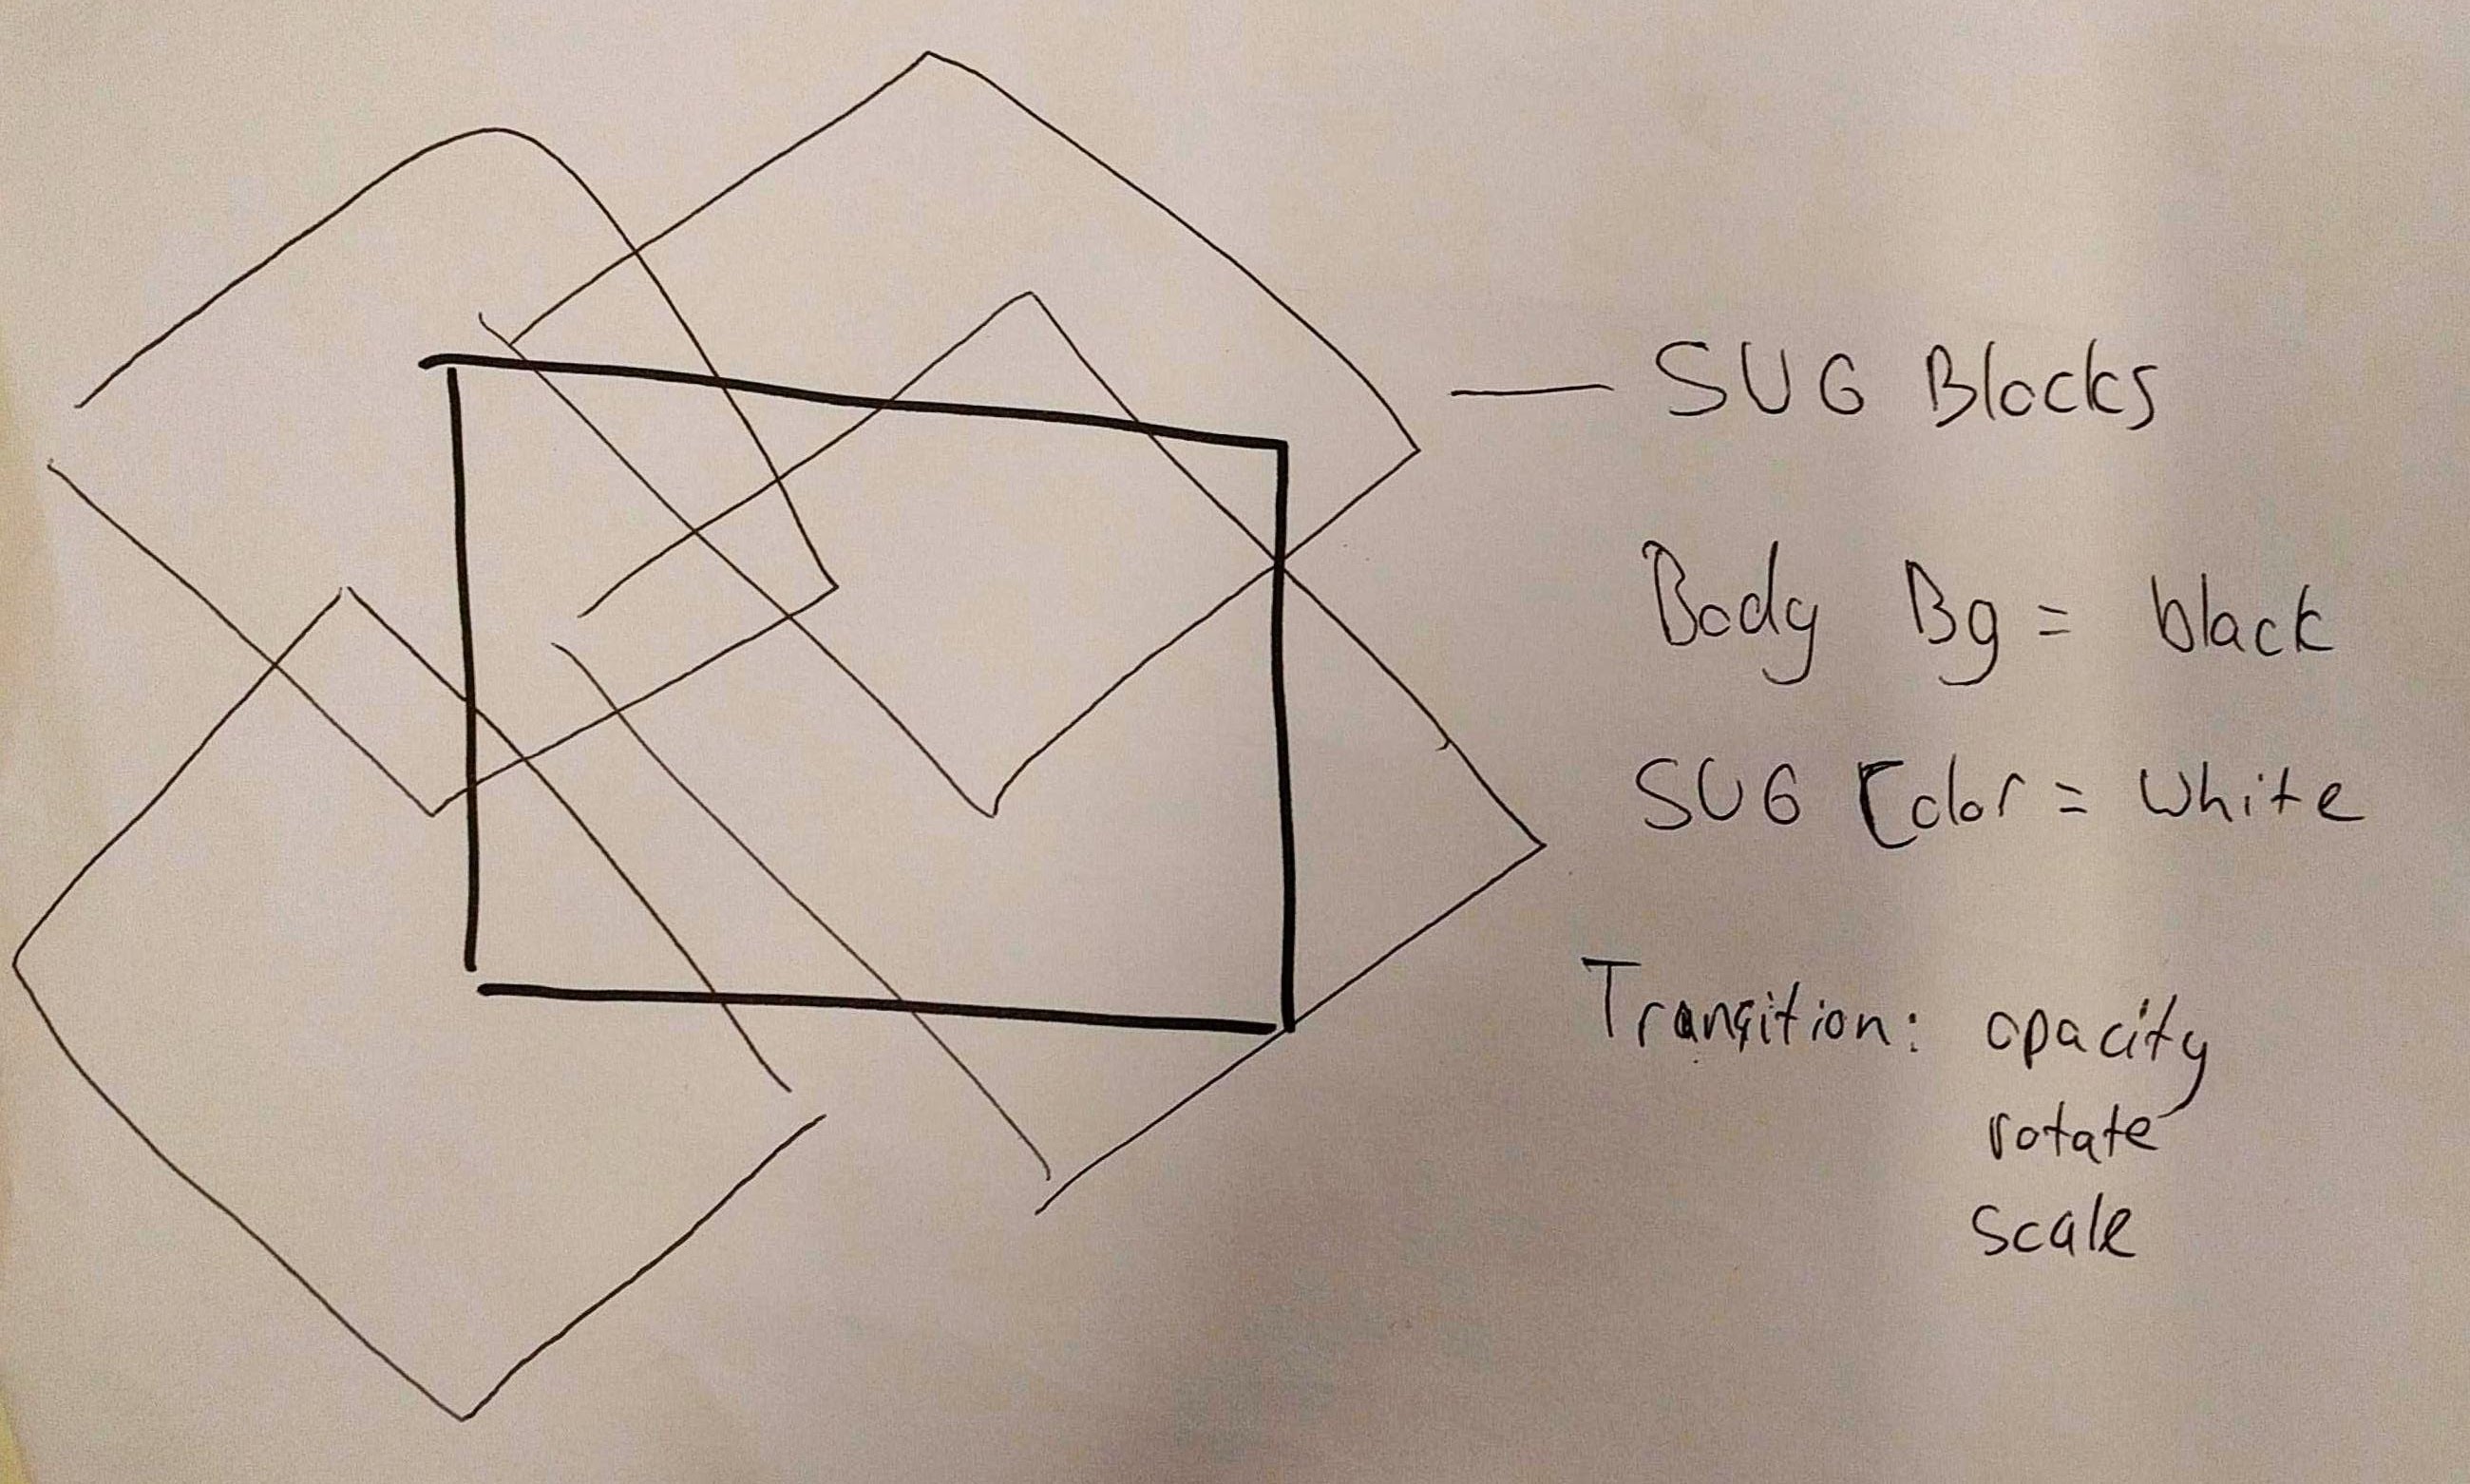 — SVG Blocks
Body Bg = black
SVG Color = white
Transition: opacity
rotate
scale